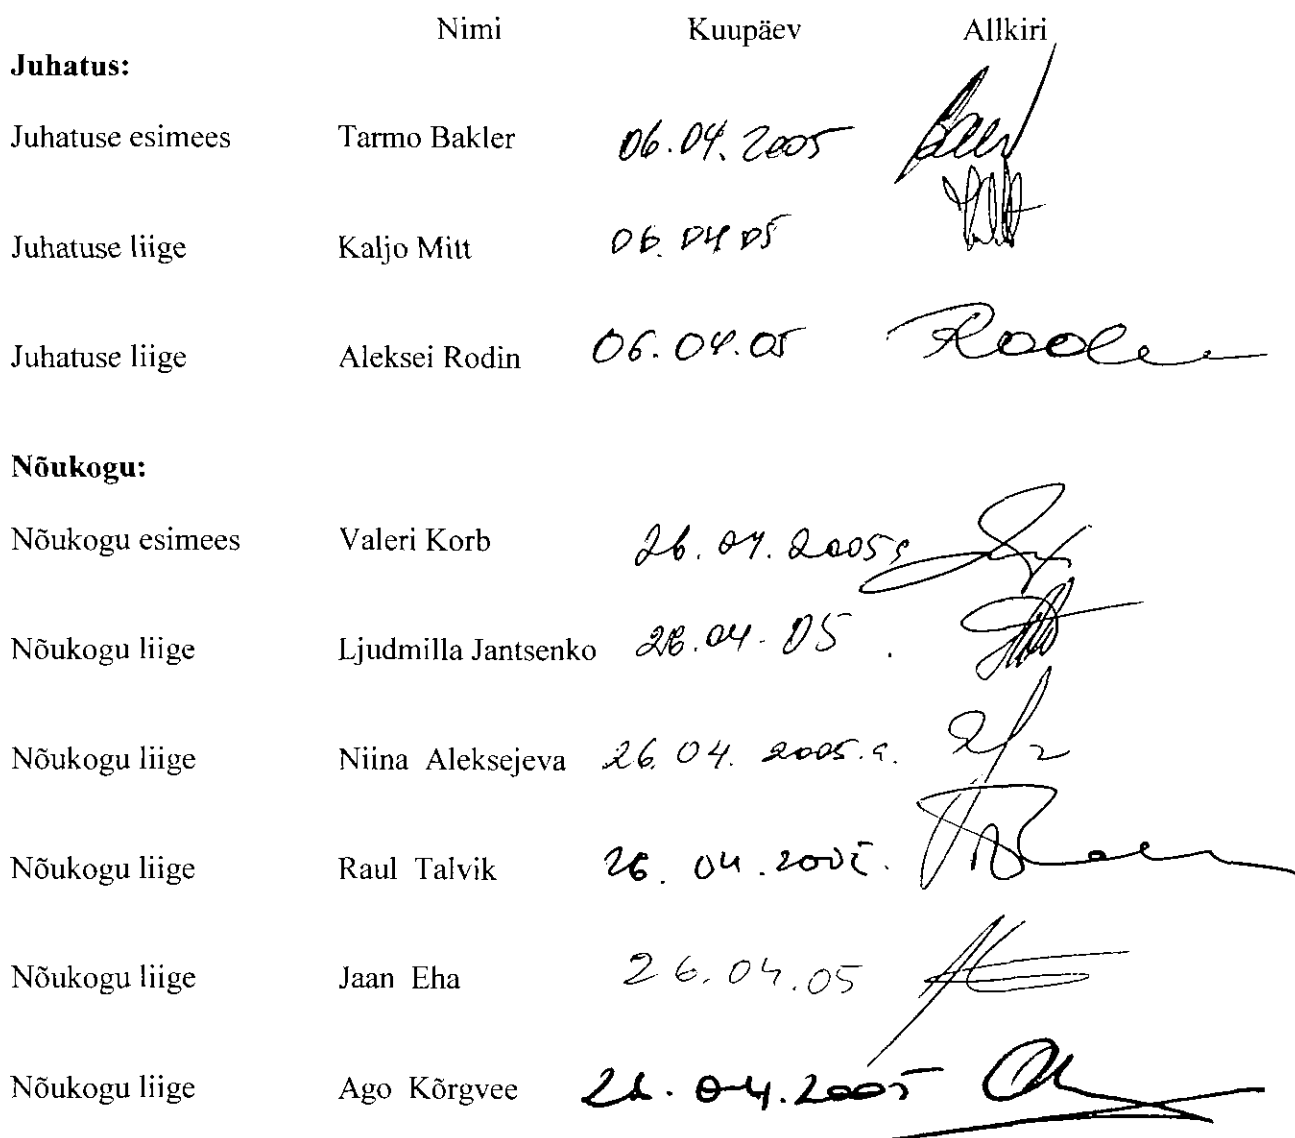 Nimi Kuupäev Allkiri
Juhatus:
Juhatuse esimees Tarmo Bakler 06.04.2005
Juhatuse liige Kaljo Mitt 06.04.05
Juhatuse liige Aleksei Rodin 06.04.05
Nõukogu:
Nõukogu esimees Valeri Korb 26.04.2005
Nõukogu liige Ljudmilla Jantsenko 26.04.05
Nõukogu liige Niina Aleksejeva 26.04.2005.a.
Nõukogu liige Raul Talvik 26.04.2005.
Nõukogu liige Jaan Eha 26.04.05
Nõukogu liige Ago Kõrgvee 26.04.2005